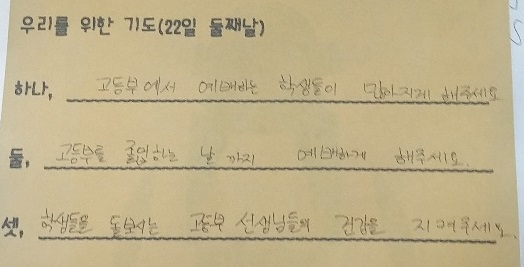 우리를 위한 기도(22일 둘째날)
하나, 고등부에서 예배하는 학생들이 많아지게 해주세요
둘, 고등부를 졸업하는 날까지 예배하게 해주세요.
셋, 학생들을 돌보시는 고등부 선생님들의 건강을 지켜주세요.